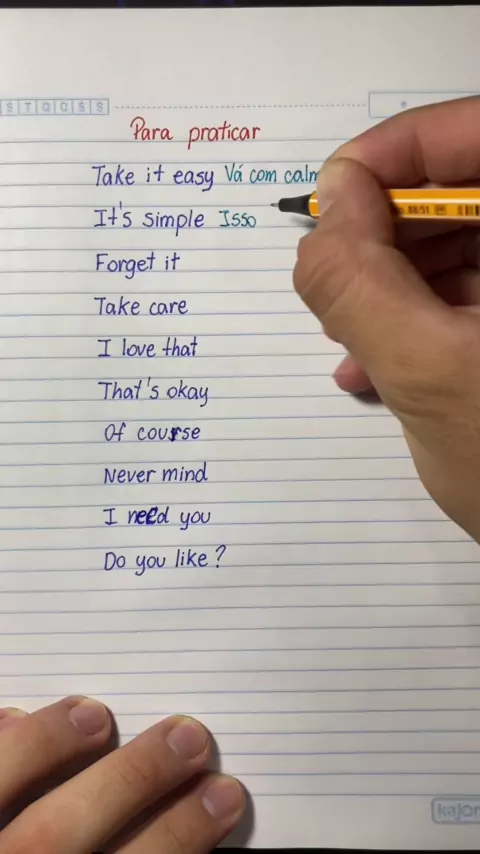 S T Q Q S S
Para praticar
Take it easy Vá com
It's simple Isso
Forget it
Take care
I love that
That's okay
Of course
Never mind
I need you
Do you like?